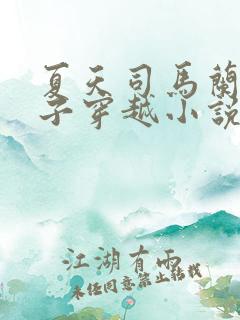 夏天司馬蘭
子穿越小說
江湖有雨
未经同意禁止转载